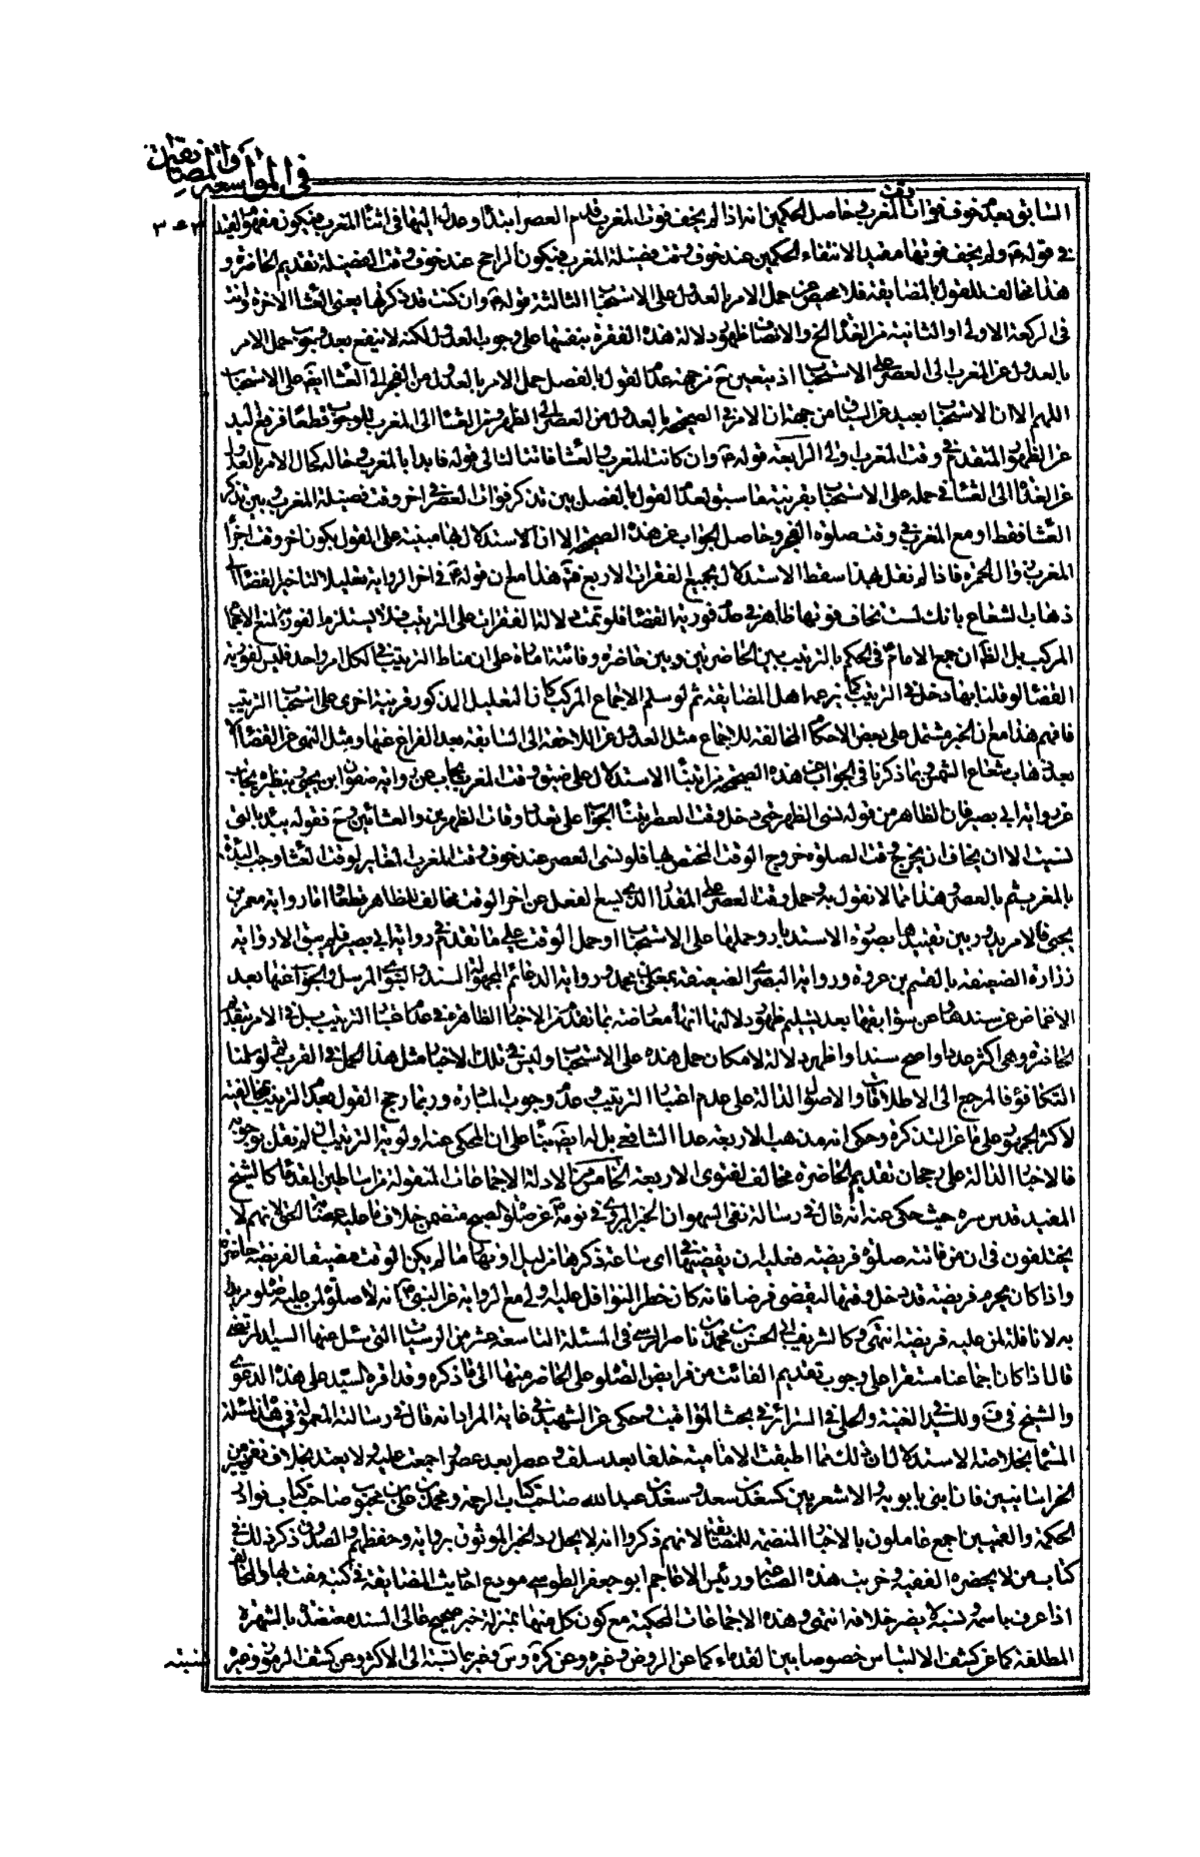 في المواسعة والمضايقة
وقت
السابق بعدم خوف فوات المغرب وحاصل الحكمين انه اذا لم يخف فوت المغرب قدم العصر ابتداء وعدل اليها في اثناء المغرب فيكون مفهوم القيد
في قوله ع ولم يخف فوتها مفيد الانتفاء الحكمين عند خوف وقت فضيلة المغرب فيكون الراجح عند خوف وقت الفضيلة تقديم الحاضرة و
هذا مخالف للقول بالمضايقة فلا محيص عن حمل الامر بالعدول على الاستحباب الثالثة قوله ع وان كنت قد ذكرتها يعني العشاء الاخرة وانت
في الركعة الاولى او الثانية من الغداة الخ والانصاف ظهور دلالة هذه الفقرة بنفسها على وجوب العدول لكنه لا ينفع بعد وجوب حمل الامر
بالعدول عن المغرب الى العصر على الاستحباب اذ يتعين ح من جهة عدم القول بالفصل حمل الامر بالعدول من الفجر الى العشاء ايضا على الاستحباب
اللهم الا ان الاستحباب بعيد عن السياق من جهة ان الامر في الصحيحة بالعدول من العصر الى الظهر ومن العشاء الى المغرب للوجوب قطعا فرفع اليد
عن الظهور المتقدم في وقت المغرب اولى الرابعة قوله ع وان كانت المغرب والعشاء فاتتاك الى قوله فابدأ بالمغرب وحاله كحال الامر بالعدول
من الغداة الى العشاء في حمله على الاستحباب بقرينة ما سبق لعدم القول بالفصل بين تذكر فوات العصر في اخر وقت فضيلة المغرب وبين تذكر
العشاء فقط او مع المغرب في وقت صلوة الفجر وحاصل الجواب عن هذه الصحيحة الا ان الاستدلال بها مبنية على القول بكون اخر وقت اجزاء
المغرب زوال الحمرة فاذا لم نقل بهذا سقط الاستدلال بجميع الفقرات الاربع فتم هذا مع ان قوله ع في اخر الرواية تعليلا لتاخير القضاء الى
ذهاب الشعاع بانك لست تخاف فوتها ظاهر في عدم فورية القضاء فلو تمت دلالة الفقرات على الترتيب فلا يستلزم الفورية لمنع الاجماع
المركب بل الظاهر ان جمع الامام في الحكم بالترتيب بين الحاضرتين وبين حاضرة وفائتة امارة على ان مناط الترتيب في الكل امر واحد فليس لفورية
القضاء لو قلنا بها دخل في الترتيب كما يزعمه اهل المضايقة ثم لو سلم الاجماع المركب كان التعليل المذكور قرينة اخرى على استحباب الترتيب
فافهم هذا مع ان الخبر مشتمل على بعض الاحكام المخالفة للاجماع مثل العدول عن اللاحقة الى السابقة بعد الفراغ عنها ومثل النهي عن القضاء الا
بعد ذهاب شعاع الشمس وبما ذكرنا في الجواب عن هذه الصحيحة من ابتناء الاستدلال على ضيق وقت المغرب يجاب عن رواية صفوان ابن يحيى وبنظيره يجاب
عن رواية ابي بصير فان الظاهر من قوله نسي الظهر حتى دخل وقت العصر ابتناء الجواب على تعدد اوقات الظهرين والعشائين وح فقوله يبدأ بالتي
نسيت الا ان يخاف ان يخرج وقت الصلوة خروج الوقت المختص بها فلو نسي العصر عند خوف وقت المغرب المغاير لوقت العشاء وجب البدأة
بالمغرب ثم بالعصر وهذا مما لا نقول به وحمل وقت العصر على المقدار الذي يسع الفعل عن اخر الوقت مخالف للظاهر قطعا واما رواية معمر بن
يحيى فالامر يدور بين تقييدها بصورة الاستدبار وحملها على الاستحباب او حمل الوقت على ما تقدم في رواية ابي بصير فلم يبق الا رواية
زرارة الضعيفة بالقسم بن عروة ورواية البصري الضعيفة بمعلى بن محمد ورواية الدعائم المجهولة السند والنبوي المرسل والجواب عنها بعد
الاغماض عن سندها وعن سوابقها بعد تسليم ظهور دلالتها انها معارضة بما تقدم من الاخبار الظاهرة في عدم اعتبار الترتيب بل في الامر بتقديم
الحاضرة وهي اكثر عددا واصح سندا واظهر دلالة لامكان حمل هذه على الاستحباب وليس في تلك الاخبار مثل هذا الحمل في القرب ثم لو سلمنا
التكافؤ فالمرجع الى الاطلاقات والاصول الدالة على عدم اعتبار الترتيب وعدم وجوب المبادرة وربما رجح القول بعدم الترتيب بمخالفته
لاكثر الجمهور على ما عن التذكرة وحكي انه مذهب الاربعة عدا الشافعي بل له ايضا بناء على ان المحكي عنه اولوية الترتيب وان لم نقل بوجوبه
فالاخبار الدالة على رجحان تقديم الحاضرة مخالف لفتوى الاربعة الخامس من الادلة الاجماعات المنقولة من اساطين القدماء كالشيخ
المفيد قدس سره حيث حكي عنه انه قال في رسالة نفي السهو ان الخبر المروي في نومه ص عن صلوة الصبح متضمن خلاف ما عليه عصابة الحق لانهم لا
يختلفون في ان من فاتته صلوة فريضة فعليه ان يقضيها في اي ساعة ذكرها من ليل او نهار ما لم يكن الوقت مضيقا لفريضة حاضرة
واذا كان يحرم فريضة قد دخل وقتها ليقضي فرضا فاته كان حظر النوافل عليه اولى مع الرواية عن النبي ص انه لا صلوة لمن عليه صلوة يريد
به لا نافلة لمن عليه فريضة انتهى وكالشريف ابي الحسن بن محمد بن ناصر الرسي في المسئلة التاسعة عشر من الرسيات التي سئل عنها السيد المرتضى
قال اذا كان اجماعنا مستقرا على وجوب تقديم الفائت من فرايض الصلوة على الحاضر منها الى ما ذكره وقد اقره السيد على هذه الدعوى
والشيخ في ف وللسيد الغنية والحلي في السرائر في بحث المواقيت وحكي عن الشهيد في غاية المراد انه قال في رسالته المعمولة في هذه المسئلة
المسماة بخلاصة الاستدلال ان ذلك مما اطبقت الامامية خلفا بعد سلف وعصرا بعد عصر واجمعت عليه ولا يعتد بخلاف نفر يسير من
الخراسانيين فان ابني بابويه والاشعريين كسعد بن سعد وسعد بن عبد الله صاحب كتاب الرحمة ومحمد بن علي بن محبوب صاحب كتاب نوادر
الحكمة والقميين اجمع عاملون بالاخبار المتضمنة للمضايقة لانهم ذكروا انه لا يحل رد الخبر الموثوق برواته وحفظتهم والصدوق ذكر ذلك في
كتاب من لا يحضره الفقيه وخريت هذه الصناعة ورئيس الاعاجم ابو جعفر الطوسي مودع احاديث المضايقة في كتبه مفت بها والمخالف
اذا عرف باسمه ونسبه لا يضر خلافه انتهى وهذه الاجماعات المحكية مع كون كل منها بمنزلة خبر صحيح عالي السند معتضدة بالشهرة
المطلقة كما عن كشف الالتباس خصوصا بين القدماء كما عن الروض وغيره وعن كرة وس وغيرهما نسبته الى الاكثر وعن كشف الرموز وغيره
نسبته